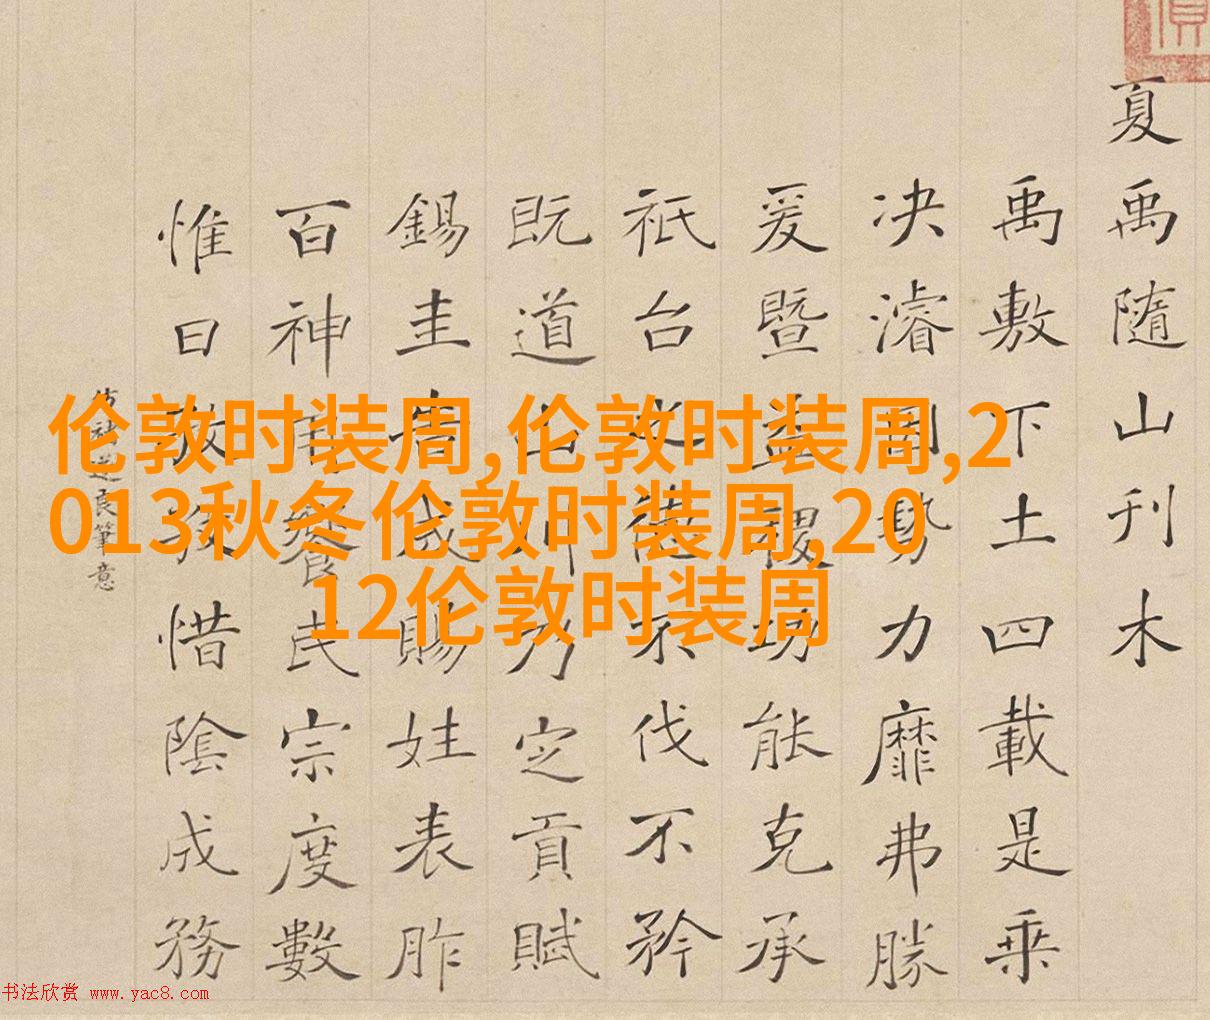 伦敦时装周,伦敦时装周,2
013秋冬伦敦时装周,20
12伦敦时装周
夏禹隨山刊木
禹敷下土四載是乘
决濬勢力靡弗勝
爰暨益稷功能克承
祇台水德不伐不矜
既道山川乃定貢賦
錫圭告成賜姓表胙
百神饗民宗度數
惟日孜孜惜陰成務
遂良筆意
书法欣赏 www.yac8.com